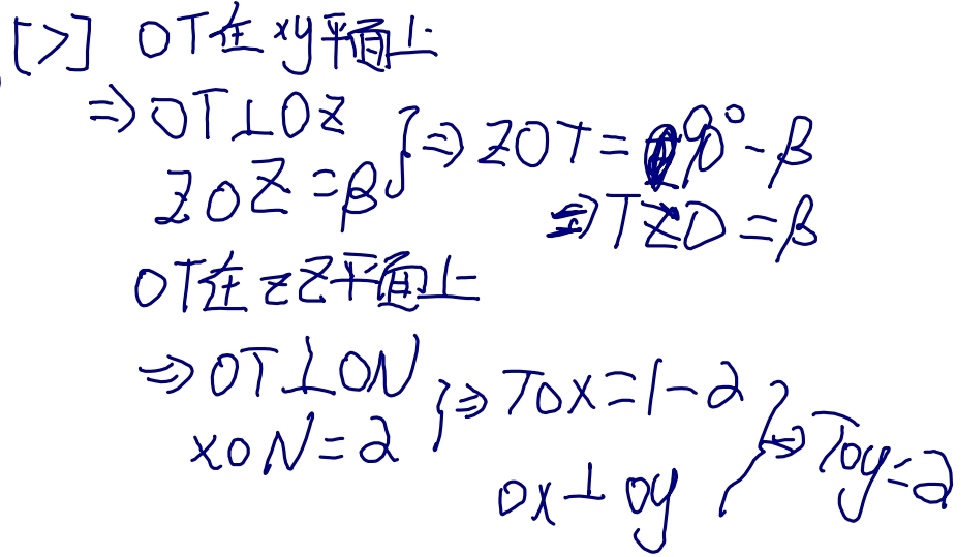 [>] OT在xy平面上
⇒OT⊥OZ
ZOZ=β}⇒ZOT=90°-β
⇒TZO=β
OT在zZ平面上
⇒OT⊥ON
xON=2}⇒TOX=1-2
OX⊥OY}⇒TOY=2